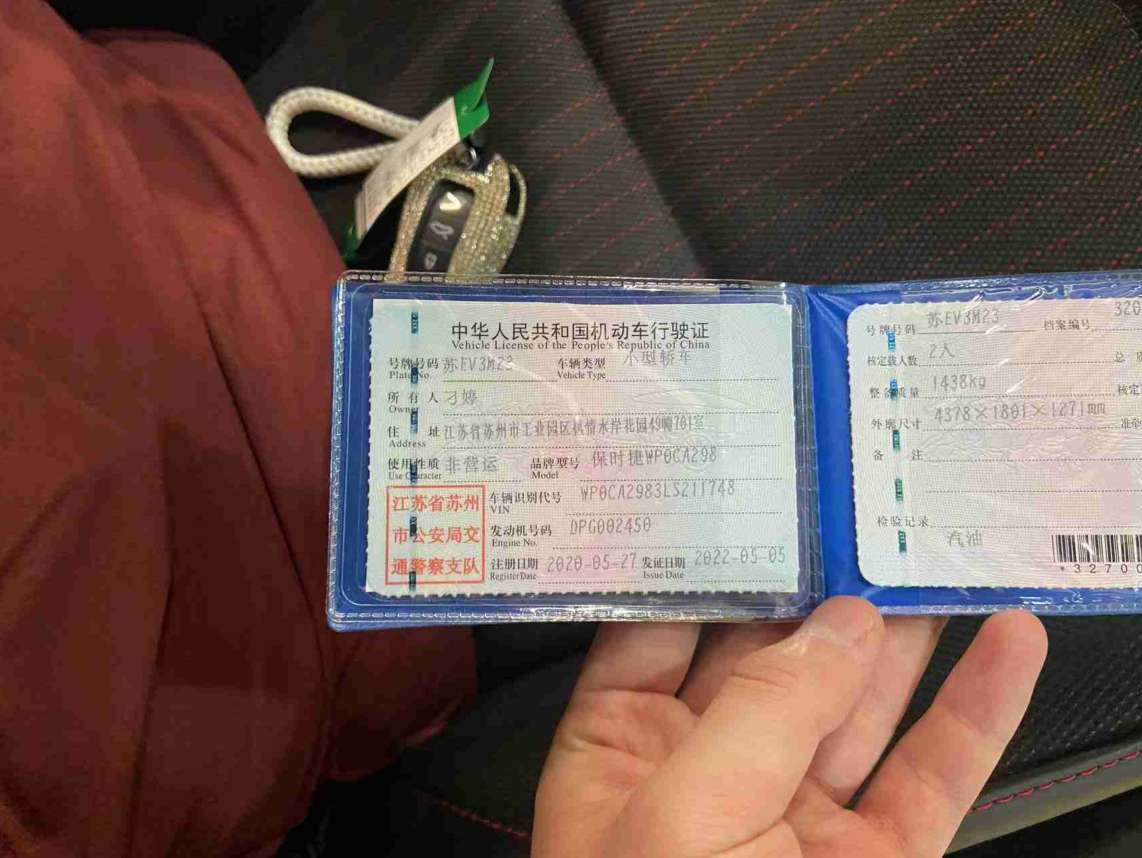 中华人民共和国机动车行驶证
Vehicle License of the People's Republic of China
号牌号码 苏EV3M23 车辆类型 小型轿车
Plate No. Vehicle Type
所有人 刁婷
Owner
住址 江苏省苏州市工业园区枫情水岸花园49幢701室
Address
使用性质 非营运 品牌型号 保时捷WP0CA298
Use Character Model
江苏省苏州
市公安局交
通警察支队
车辆识别代号 WP0CA2983LS211748
VIN
发动机号码 DPG002450
Engine No.
注册日期 2020-05-27 发证日期 2022-05-05
Register Date Issue Date
号牌号码 苏EV3M23 档案编号 320
核定载人数 2人 总 质
整备质量 1438kg 核定
外廓尺寸 4378×1801×1271mm 准牵
备注
检验记录
汽油
*32700